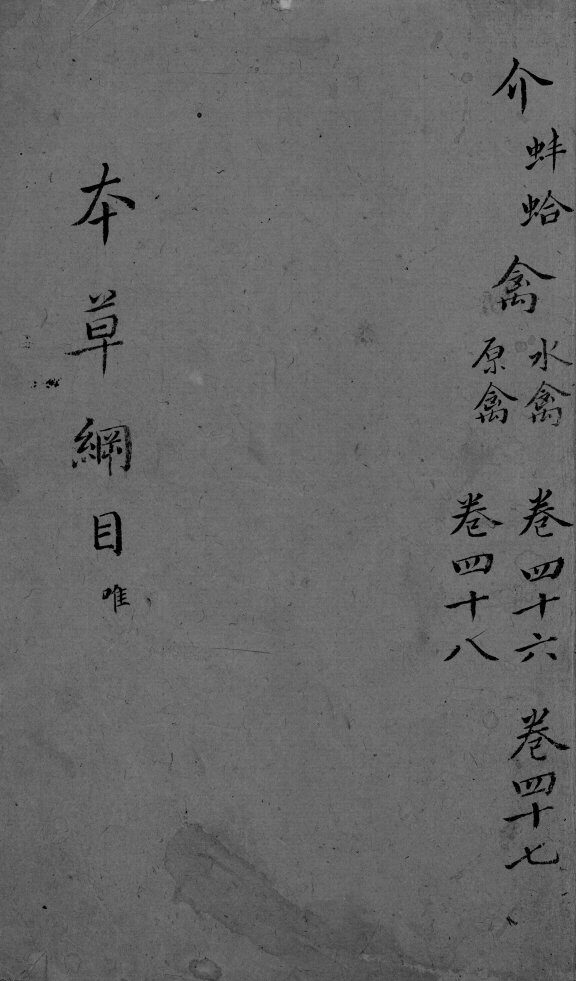 介
蚌蛤
禽
水禽
原禽
卷四十六
卷四十七
卷四十八
本草綱目 唯